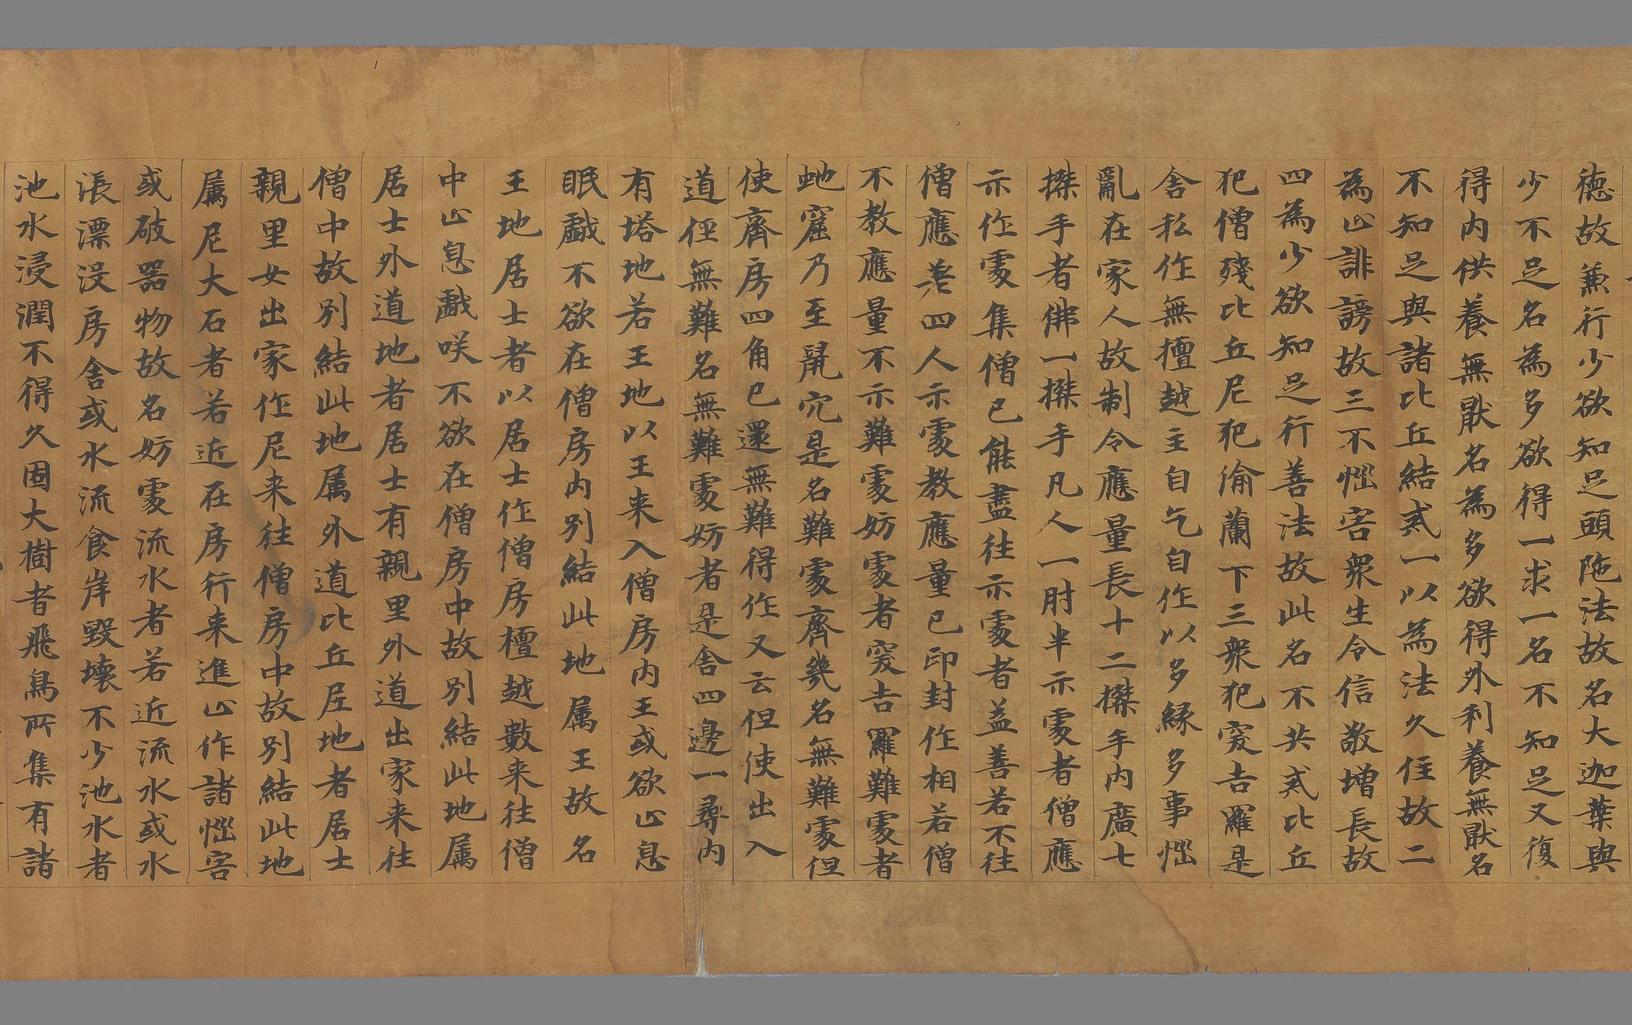 德故兼行少欲知足頭陁法故名大迦葉與
少不足名為多欲得一求一名不知足又復
得內供養無猒名為多欲得外利養無猒名
不知足與諸比丘結戒一以為法久住故二
為止誹謗故三不惱害衆生令信敬增長故
四為少欲知足行善法故此名不共戒比丘
犯僧殘比丘尼犯偷蘭下三衆犯突吉羅是
舍私作無擅越主自乞自作以多緣多事惱
亂在家人故制令應量長十二搩手內廣七
搩手者佛一搩手凡人一肘半示處者僧應
示作處集僧已能盡往示處者益善若不往
僧應羌四人示處教應量已印封作相若僧
不教應量不示難處妨處者突吉羅難處者
虵窟乃至鼠穴是名難處齊幾名無難處但
使齊房四角已還無難得作又云但使出入
道俓無難名無難處妨者是舍四邊一尋內
有塔地若王地以王来入僧房內王或欲止息
眠戲不欲在僧房內別結此地属王故名
王地居士者以居士作僧房檀越數来往僧
中止息戲咲不欲在僧房中故別結此地属
居士外道地者居士有親里外道出家来往
僧中故別結此地属外道比丘𡊮地者居士
親里女出家作尼来往僧房中故別結此地
属尼大石者若近在房行来進止作諸惱害
或破器物故名妨處流水者若近流水或水
漲漂没房舍或水流食岸毀壞不少池水者
池水浸潤不得久固大樹者飛鳥所集有諸